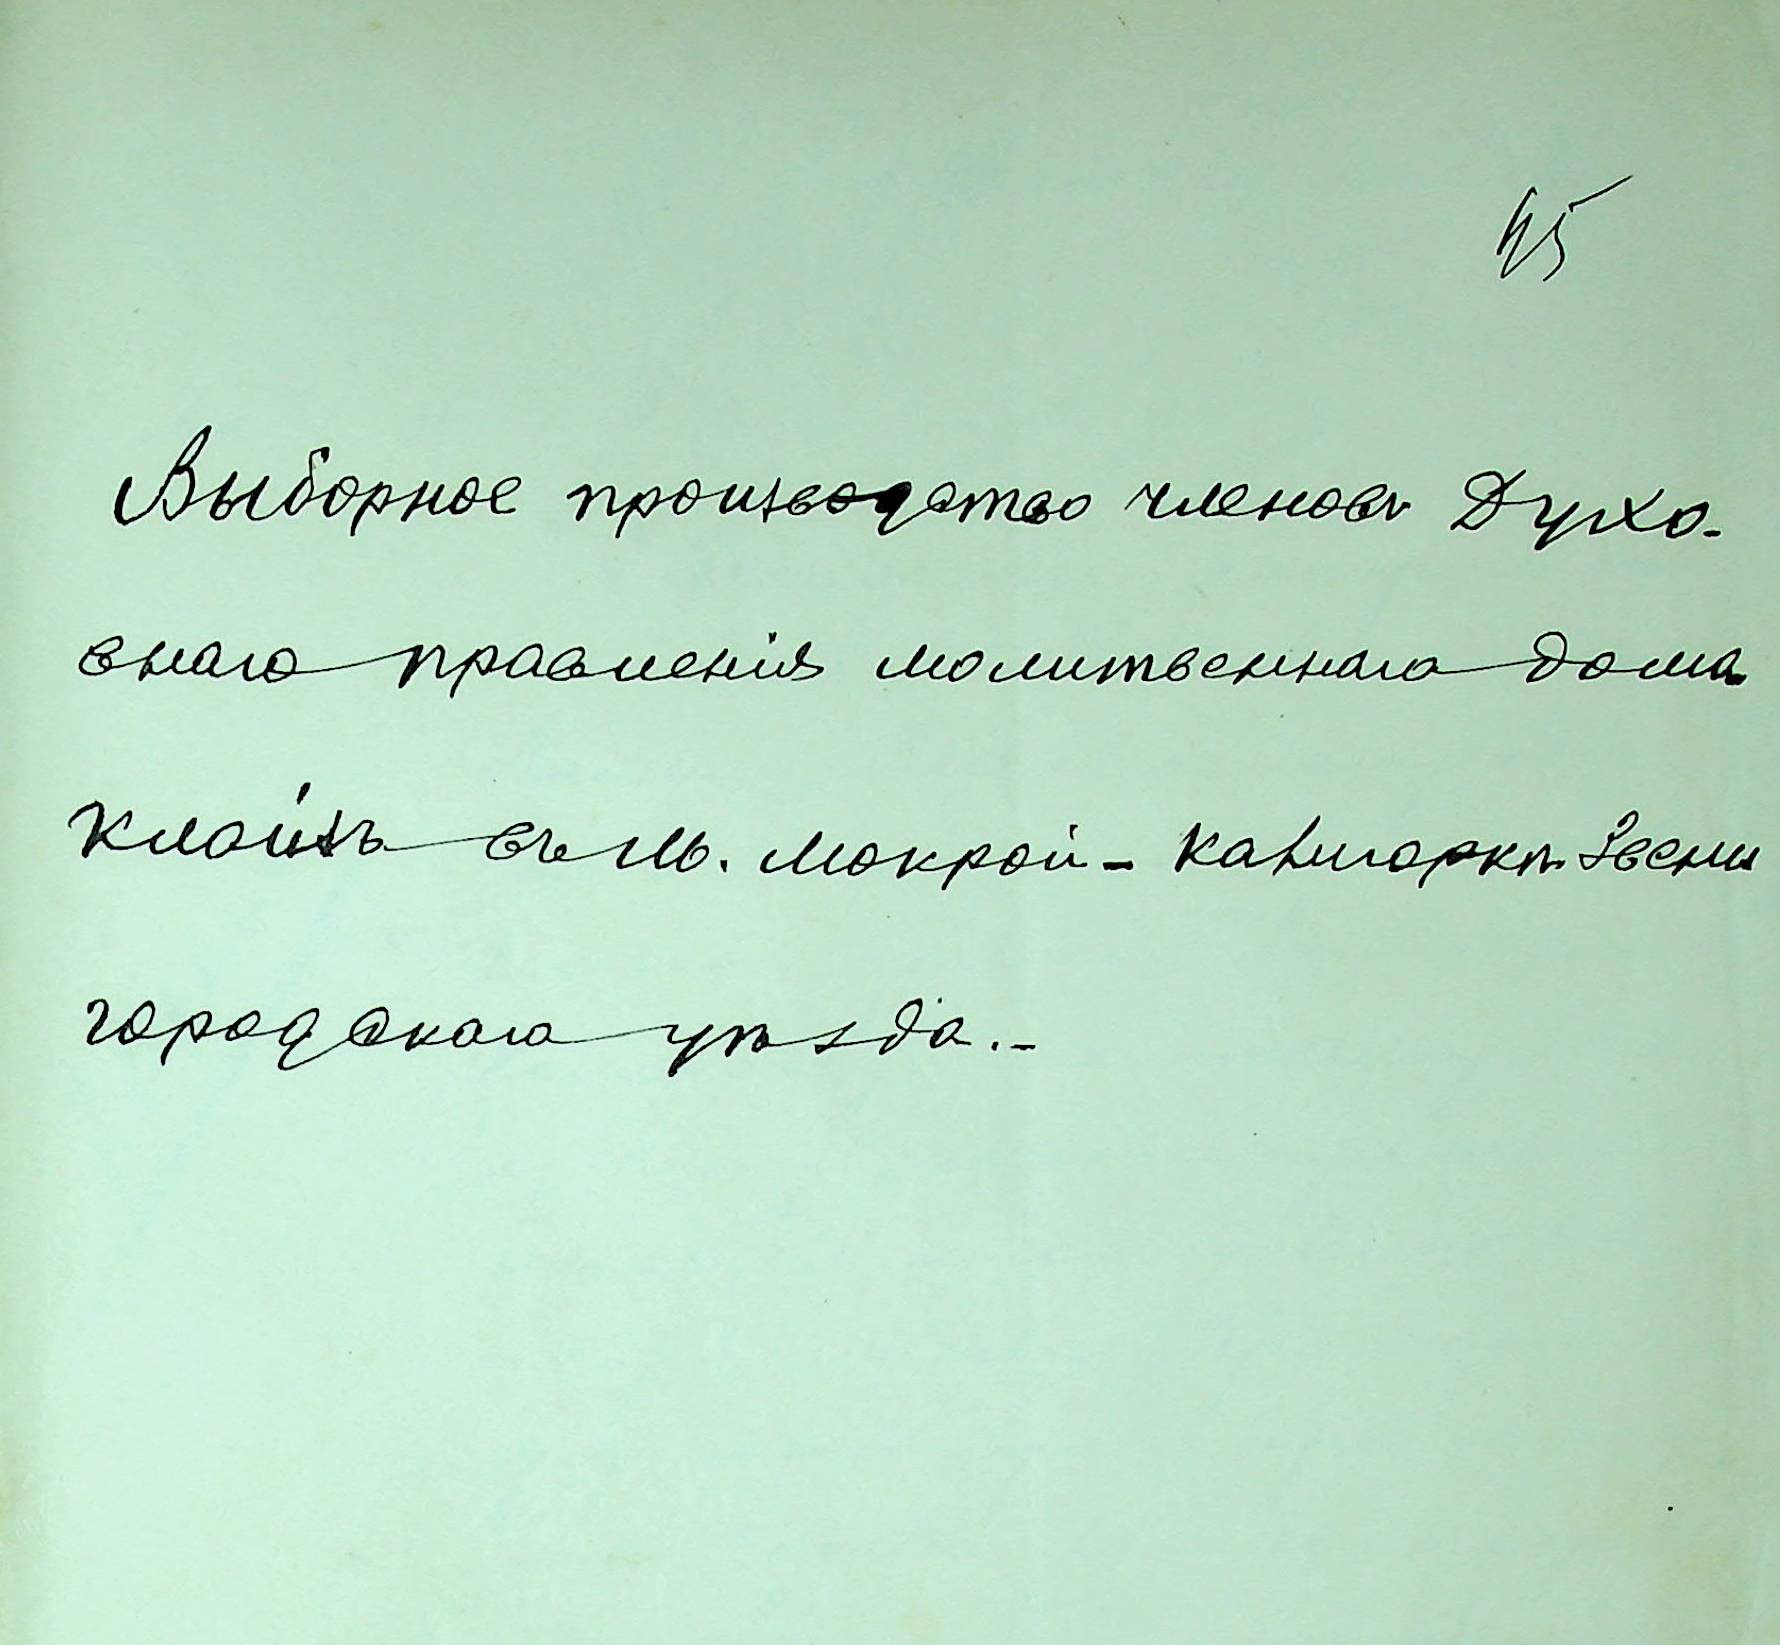 45
Выборное производство членовъ Духо-
внаго правленія молитвеннаго дома
Клойзъ въ м. Мокрой-Калигоркѣ Звени
городскаго уѣзда.-